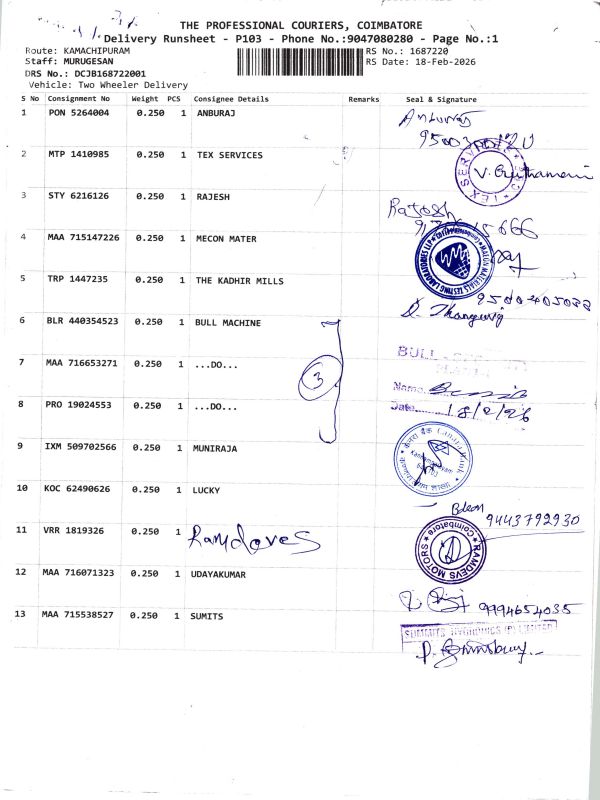 THE PROFESSIONAL COURIERS, COIMBATORE
Delivery Runsheet - P103 - Phone No.:9047080280 - Page No.:1
Route: KAMACHIPURAM RS No.: 1687220
Staff: MURUGESAN RS Date: 18-Feb-2026
DRS No.: DCJB168722001
Vehicle: Two Wheeler Delivery
S No Consignment No Weight PCS Consignee Details Remarks Seal & Signature
1 PON 5264004 0.250 1 ANBURAJ
2 MTP 1410985 0.250 1 TEX SERVICES
3 STY 6216126 0.250 1 RAJESH
4 MAA 715147226 0.250 1 MECON MATER
5 TRP 1447235 0.250 1 THE KADHIR MILLS
9500405088
6 BLR 440354523 0.250 1 BULL MACHINE
BULL
7 MAA 716653271 0.250 1 ...DO...
3
Name
8 PRO 19024553 0.250 1 ...DO...
Date 18/2/26
9 IXM 509702566 0.250 1 MUNIRAJA
Canara Bank
10 KOC 62490626 0.250 1 LUCKY
9443792930
11 VRR 1819326 0.250 1 Ramdeves
Coimbatore
RAMDEVS MOTORS
12 MAA 716071323 0.250 1 UDAYAKUMAR
9994654035
13 MAA 715538527 0.250 1 SUMITS